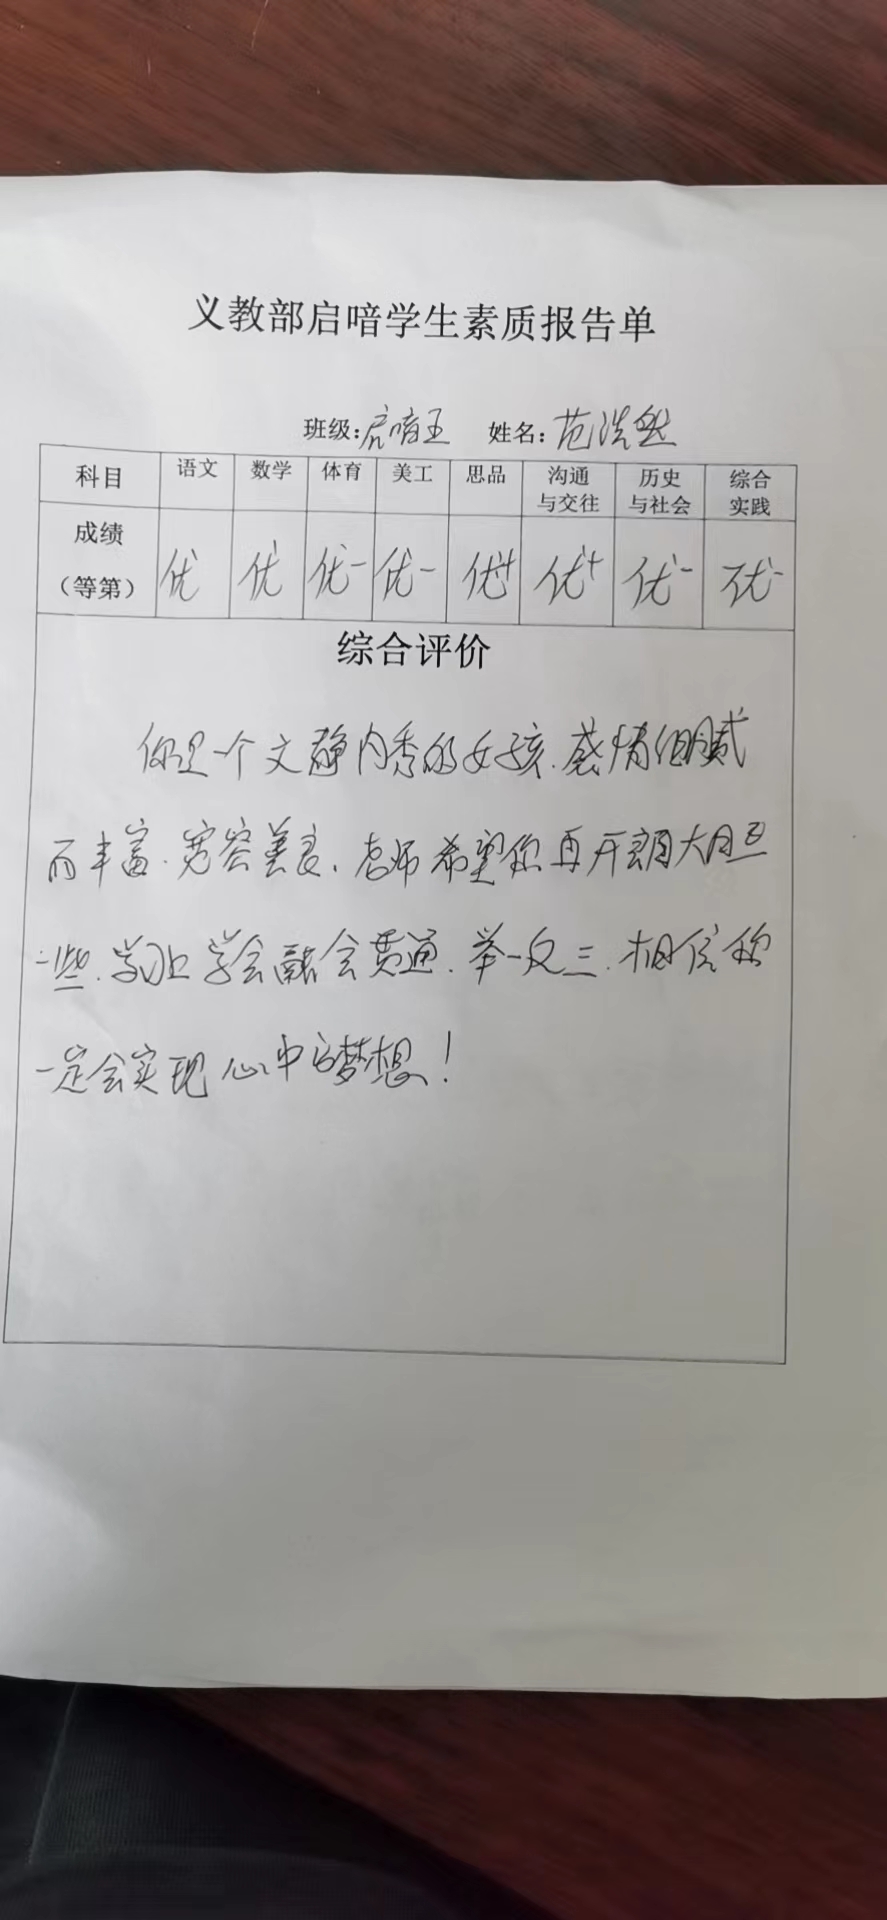 义教部启喑学生素质报告单
班级:启喑五 姓名:范浩然
科目 语文 数学 体育 美工 思品 沟通与交往 历史与社会 综合实践
成绩（等第） 优 优 优- 优- 优+ 优+ 优- 优-
综合评价
你是一个文静内秀的女孩.感情细腻
而丰富.宽容善良、老师希望你再开朗大胆
一些.学习上学会融会贯通.举一反三.相信你
一定会实现心中的梦想！